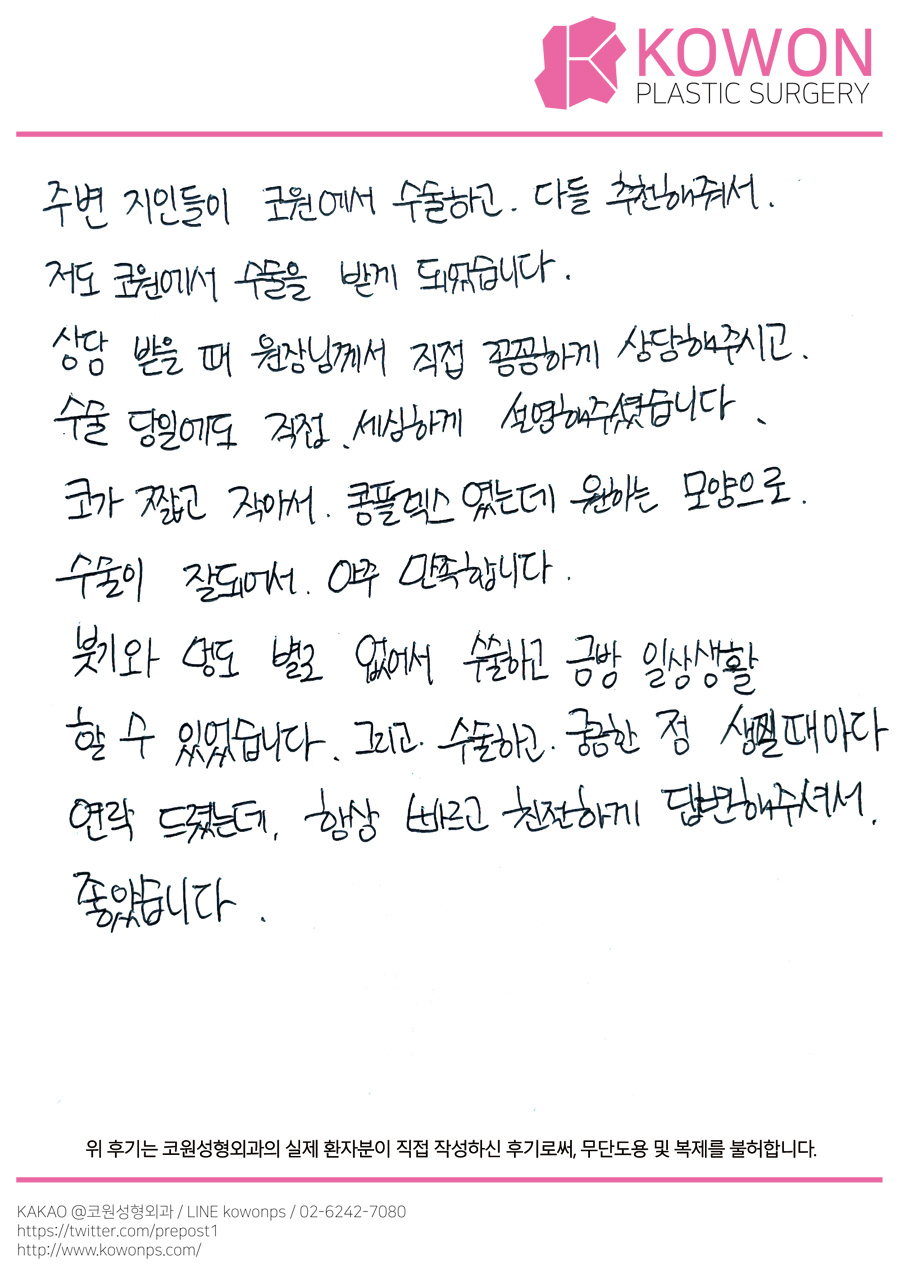 KOWON
PLASTIC SURGERY
주변 지인들이 코원에서 수술하고. 다들 추천해줘서.
저도 코원에서 수술을 받게 되었습니다.
상담 받을 때 원장님께서 직접 꼼꼼하게 상담해주시고.
수술 당일에도 직접. 세심하게 설명해주셨습니다.
코가 짧고 작아서. 콩플렉스 였는데 원하는 모양으로.
수술이 잘되어서. 아주 만족합니다.
붓기와 멍도 별로 없어서 수술하고 금방 일상생활
할 수 있었습니다. 그리고. 수술하고. 궁금한 점 생길때마다
연락 드렸는데, 항상 빠르고 친절하게 답변해주셔서.
좋았습니다.
위 후기는 코원성형외과의 실제 환자분이 직접 작성하신 후기로써, 무단도용 및 복제를 불허합니다.
KAKAO @코원성형외과 / LINE kowonps / 02-6242-7080
https://twitter.com/prepost1
http://www.kowonps.com/